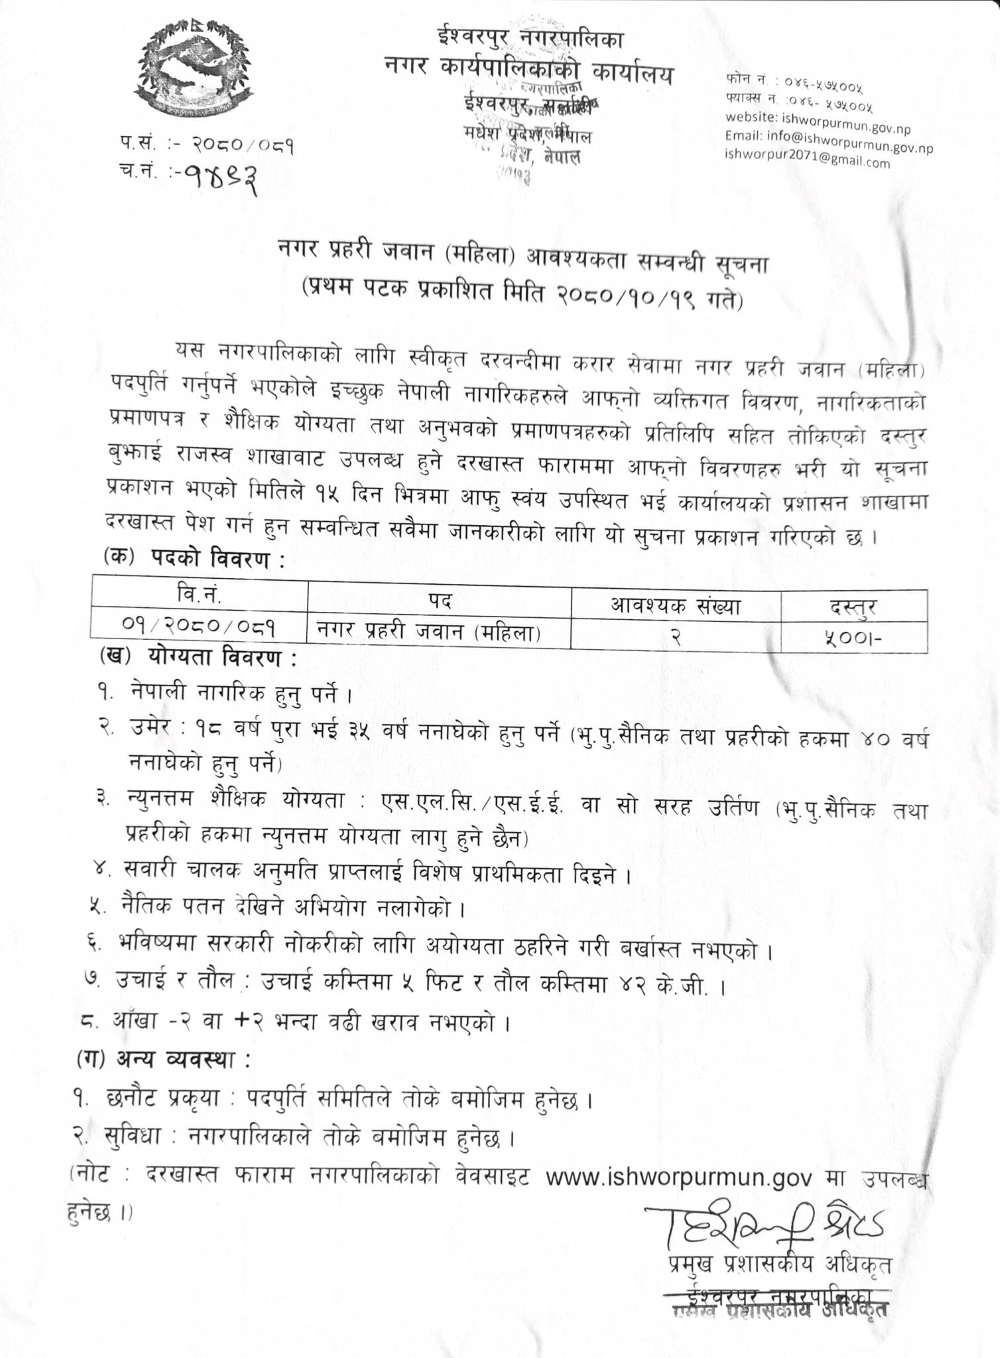 ईश्वरपुर नगरपालिका
नगर कार्यपालिकाको कार्यालय
ईश्वरपुर, सर्लाही
मधेश प्रदेश, नेपाल
प्रदेश, नेपाल
फोन नं. : ०४६-५७५००५
फ्याक्स नं. :०४६- ५७५००५
website: ishworpurmun.gov.np
Email: info@ishworpurmun.gov.np
ishworpur2071@gmail.com
प.सं. :- २०८०/०८१
च.नं. :-१४९३
नगर प्रहरी जवान (महिला) आवश्यकता सम्वन्धी सूचना
(प्रथम पटक प्रकाशित मिति २०८०/१०/१९ गते)
यस नगरपालिकाको लागि स्वीकृत दरवन्दीमा करार सेवामा नगर प्रहरी जवान (महिला)
पदपुर्ति गर्नुपर्ने भएकोले इच्छुक नेपाली नागरिकहरुले आफ्नो व्यक्तिगत विवरण, नागरिकताको
प्रमाणपत्र र शैक्षिक योग्यता तथा अनुभवको प्रमाणपत्रहरुको प्रतिलिपि सहित तोकिएको दस्तुर
बुझाई राजस्व शाखावाट उपलब्ध हुने दरखास्त फाराममा आफ्नो विवरणहरु भरी यो सूचना
प्रकाशन भएको मितिले १५ दिन भित्रमा आफु स्वंय उपस्थित भई कार्यालयको प्रशासन शाखामा
दरखास्त पेश गर्न हुन सम्वन्धित सवैमा जानकारीको लागि यो सुचना प्रकाशन गरिएको छ ।
(क) पदको विवरण :
वि.नं. पद आवश्यक संख्या दस्तुर
०१/२०८०/०८१ नगर प्रहरी जवान (महिला) २ ५००।-
(ख) योग्यता विवरण :
१. नेपाली नागरिक हुनु पर्ने ।
२. उमेर : १८ वर्ष पुरा भई ३५ वर्ष ननाघेको हुनु पर्ने (भु.पु.सैनिक तथा प्रहरीको हकमा ४० वर्ष
ननाघेको हुनु पर्ने)
३. न्युनत्तम शैक्षिक योग्यता : एस.एल.सि./एस.ई.ई. वा सो सरह उर्तिण (भु.पु.सैनिक तथा
प्रहरीको हकमा न्युनत्तम योग्यता लागु हुने छैन)
४. सवारी चालक अनुमति प्राप्तलाई विशेष प्राथमिकता दिइने ।
५. नैतिक पतन देखिने अभियोग नलागेको ।
६. भविष्यमा सरकारी नोकरीको लागि अयोग्यता ठहरिने गरी बर्खास्त नभएको ।
७. उचाई र तौल : उचाई कम्तिमा ५ फिट र तौल कम्तिमा ४२ के.जी. ।
८. आँखा -२ वा +२ भन्दा वढी खराव नभएको ।
(ग) अन्य व्यवस्था :
१. छनौट प्रकृया : पदपुर्ति समितिले तोके बमोजिम हुनेछ ।
२. सुविधा : नगरपालिकाले तोके बमोजिम हुनेछ ।
(नोट : दरखास्त फाराम नगरपालिकाको वेवसाइट www.ishworpurmun.gov मा उपलब्ध
हुनेछ ।)
प्रमुख प्रशासकीय अधिकृत
ईश्वरपुर नगरपालिका
प्रमुख प्रशासकीय अधिकृत